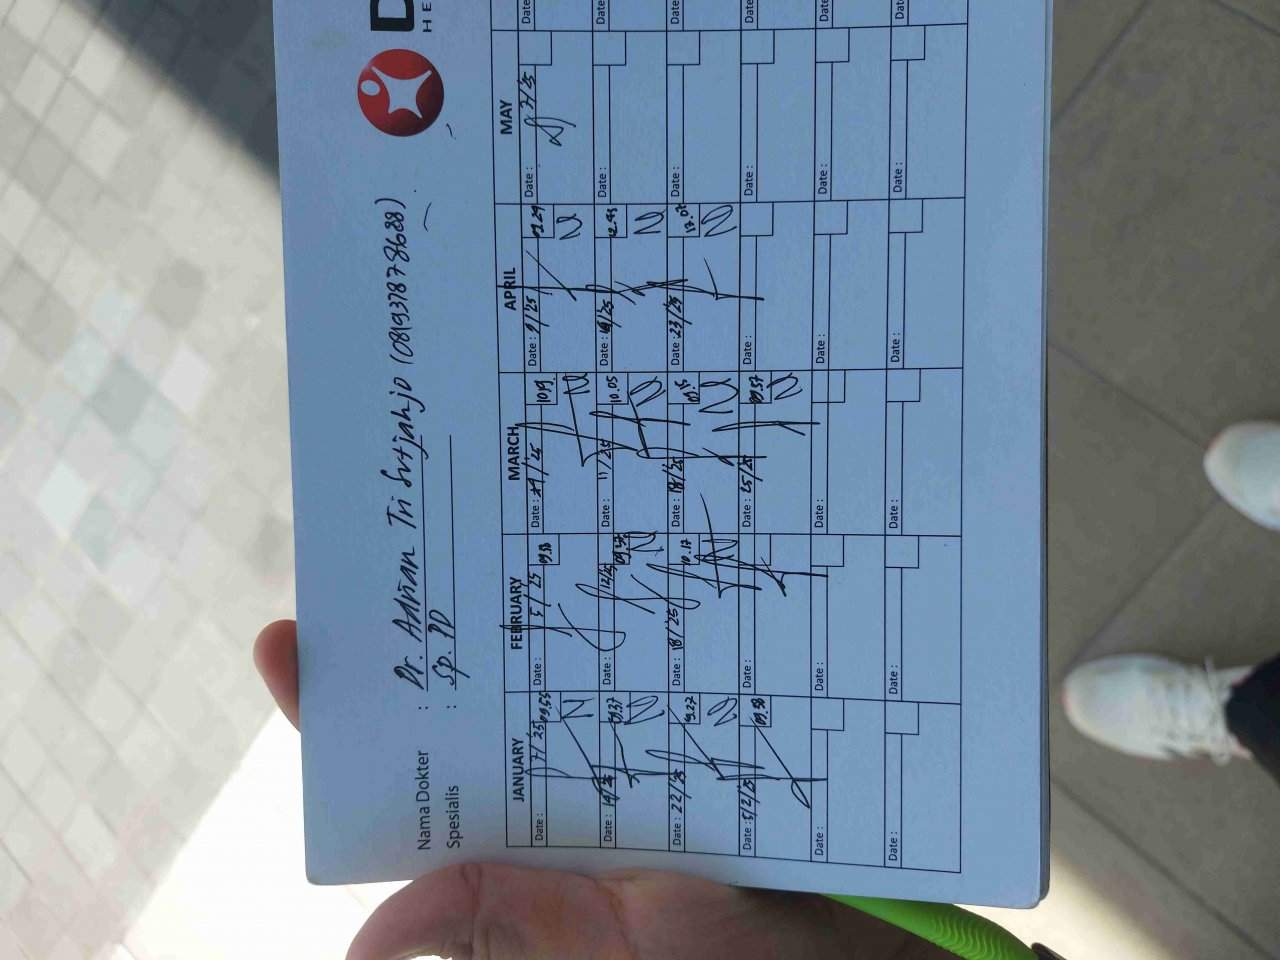 D
HE
Nama Dokter : Dr. Adrian Tri Sutjahjo (081937878688)
Spesialis : Sp. PD
JANUARY FEBRUARY MARCH APRIL MAY
Date : 7/'25 09.55 Date : 5/'25 09.38 Date : 1019. Date : 9/'25 09.29 Date : 7/5
Date : 14/25 09.37 Date : 12/25 09.37 Date : 11/25 10.05 Date : /25 12.45 Date :
Date : 22/25 09.27 Date : 18/'25 10.17 Date : 18/'25 09.5 Date : 23/25 Date :
Date : 5/2/25 09.38 Date : Date : 25/25 09.57 Date : Date :
Date : Date : Date : Date : Date :
Date : Date : Date : Date : Date :